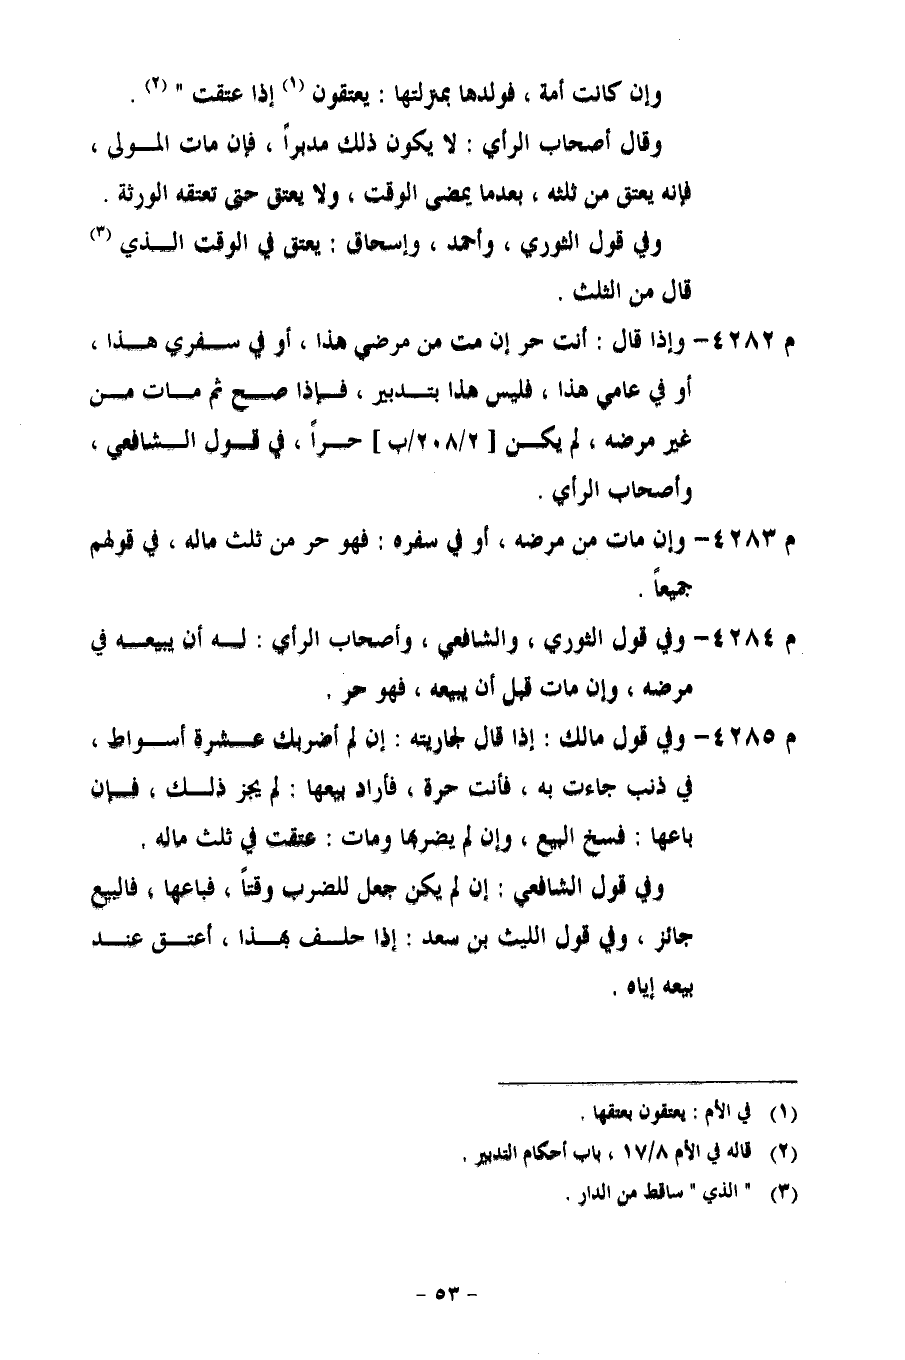 وإن كانت أمة ، فولدها بمنزلتها : يعتقون (١) إذا عتقت " (٢) .
وقال أصحاب الرأي : لا يكون ذلك مدبراً ، فإن مات المولى ،
فإنه يعتق من ثلثه ، بعدما يمضي الوقت ، ولا يعتق حتى تعتقه الورثة .
وفي قول الثوري ، وأحمد ، وإسحاق : يعتق في الوقت الذي (٣)
قال من الثلث .
م ٤٢٨٢- وإذا قال : أنت حر إن مت من مرضي هذا ، أو في سفري هذا ،
أو في عامي هذا ، فليس هذا بتدبير ، فإذا صح ثم مات من
غير مرضه ، لم يكن [ ٢/٢٠٨/ب ] حراً ، في قول الشافعي ،
وأصحاب الرأي .
م ٤٢٨٣- وإن مات من مرضه ، أو في سفره : فهو حر من ثلث ماله ، في قولهم
جميعاً .
م ٤٢٨٤- وفي قول الثوري ، والشافعي ، وأصحاب الرأي : له أن يبيعه في
مرضه ، وإن مات قبل أن يبيعه ، فهو حر .
م ٤٢٨٥- وفي قول مالك : إذا قال لجاريته : إن لم أضربك عشرة أسواط ،
في ذنب جاءت به ، فأنت حرة ، فأراد بيعها : لم يجز ذلك ، فإن
باعها : فسخ البيع ، وإن لم يضربها ومات : عتقت في ثلث ماله .
وفي قول الشافعي : إن لم يكن جعل للضرب وقتاً ، فباعها ، فالبيع
جائز ، وفي قول الليث بن سعد : إذا حلف بهذا ، أعتق عند
بيعه إياه .
(١) في الأم : يعتقون بعتقها .
(٢) قاله في الأم ١٧/٨ ، باب أحكام التدبير .
(٣) " الذي " ساقط من الدار .
- ٥٣ -